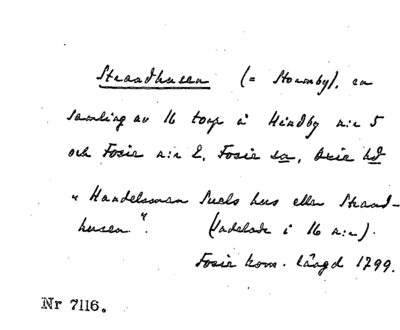 Strandhusen (= Stormby), en
samling av 16 torp å Hindby n:r 5
och Fosie n:r 2, Fosie sn, Oxie hd
"Handelsman Suels hus eller Strand-
husen". (Indelade i 16 n:r).
Fosie kom. längd 1799.
Nr 7116.